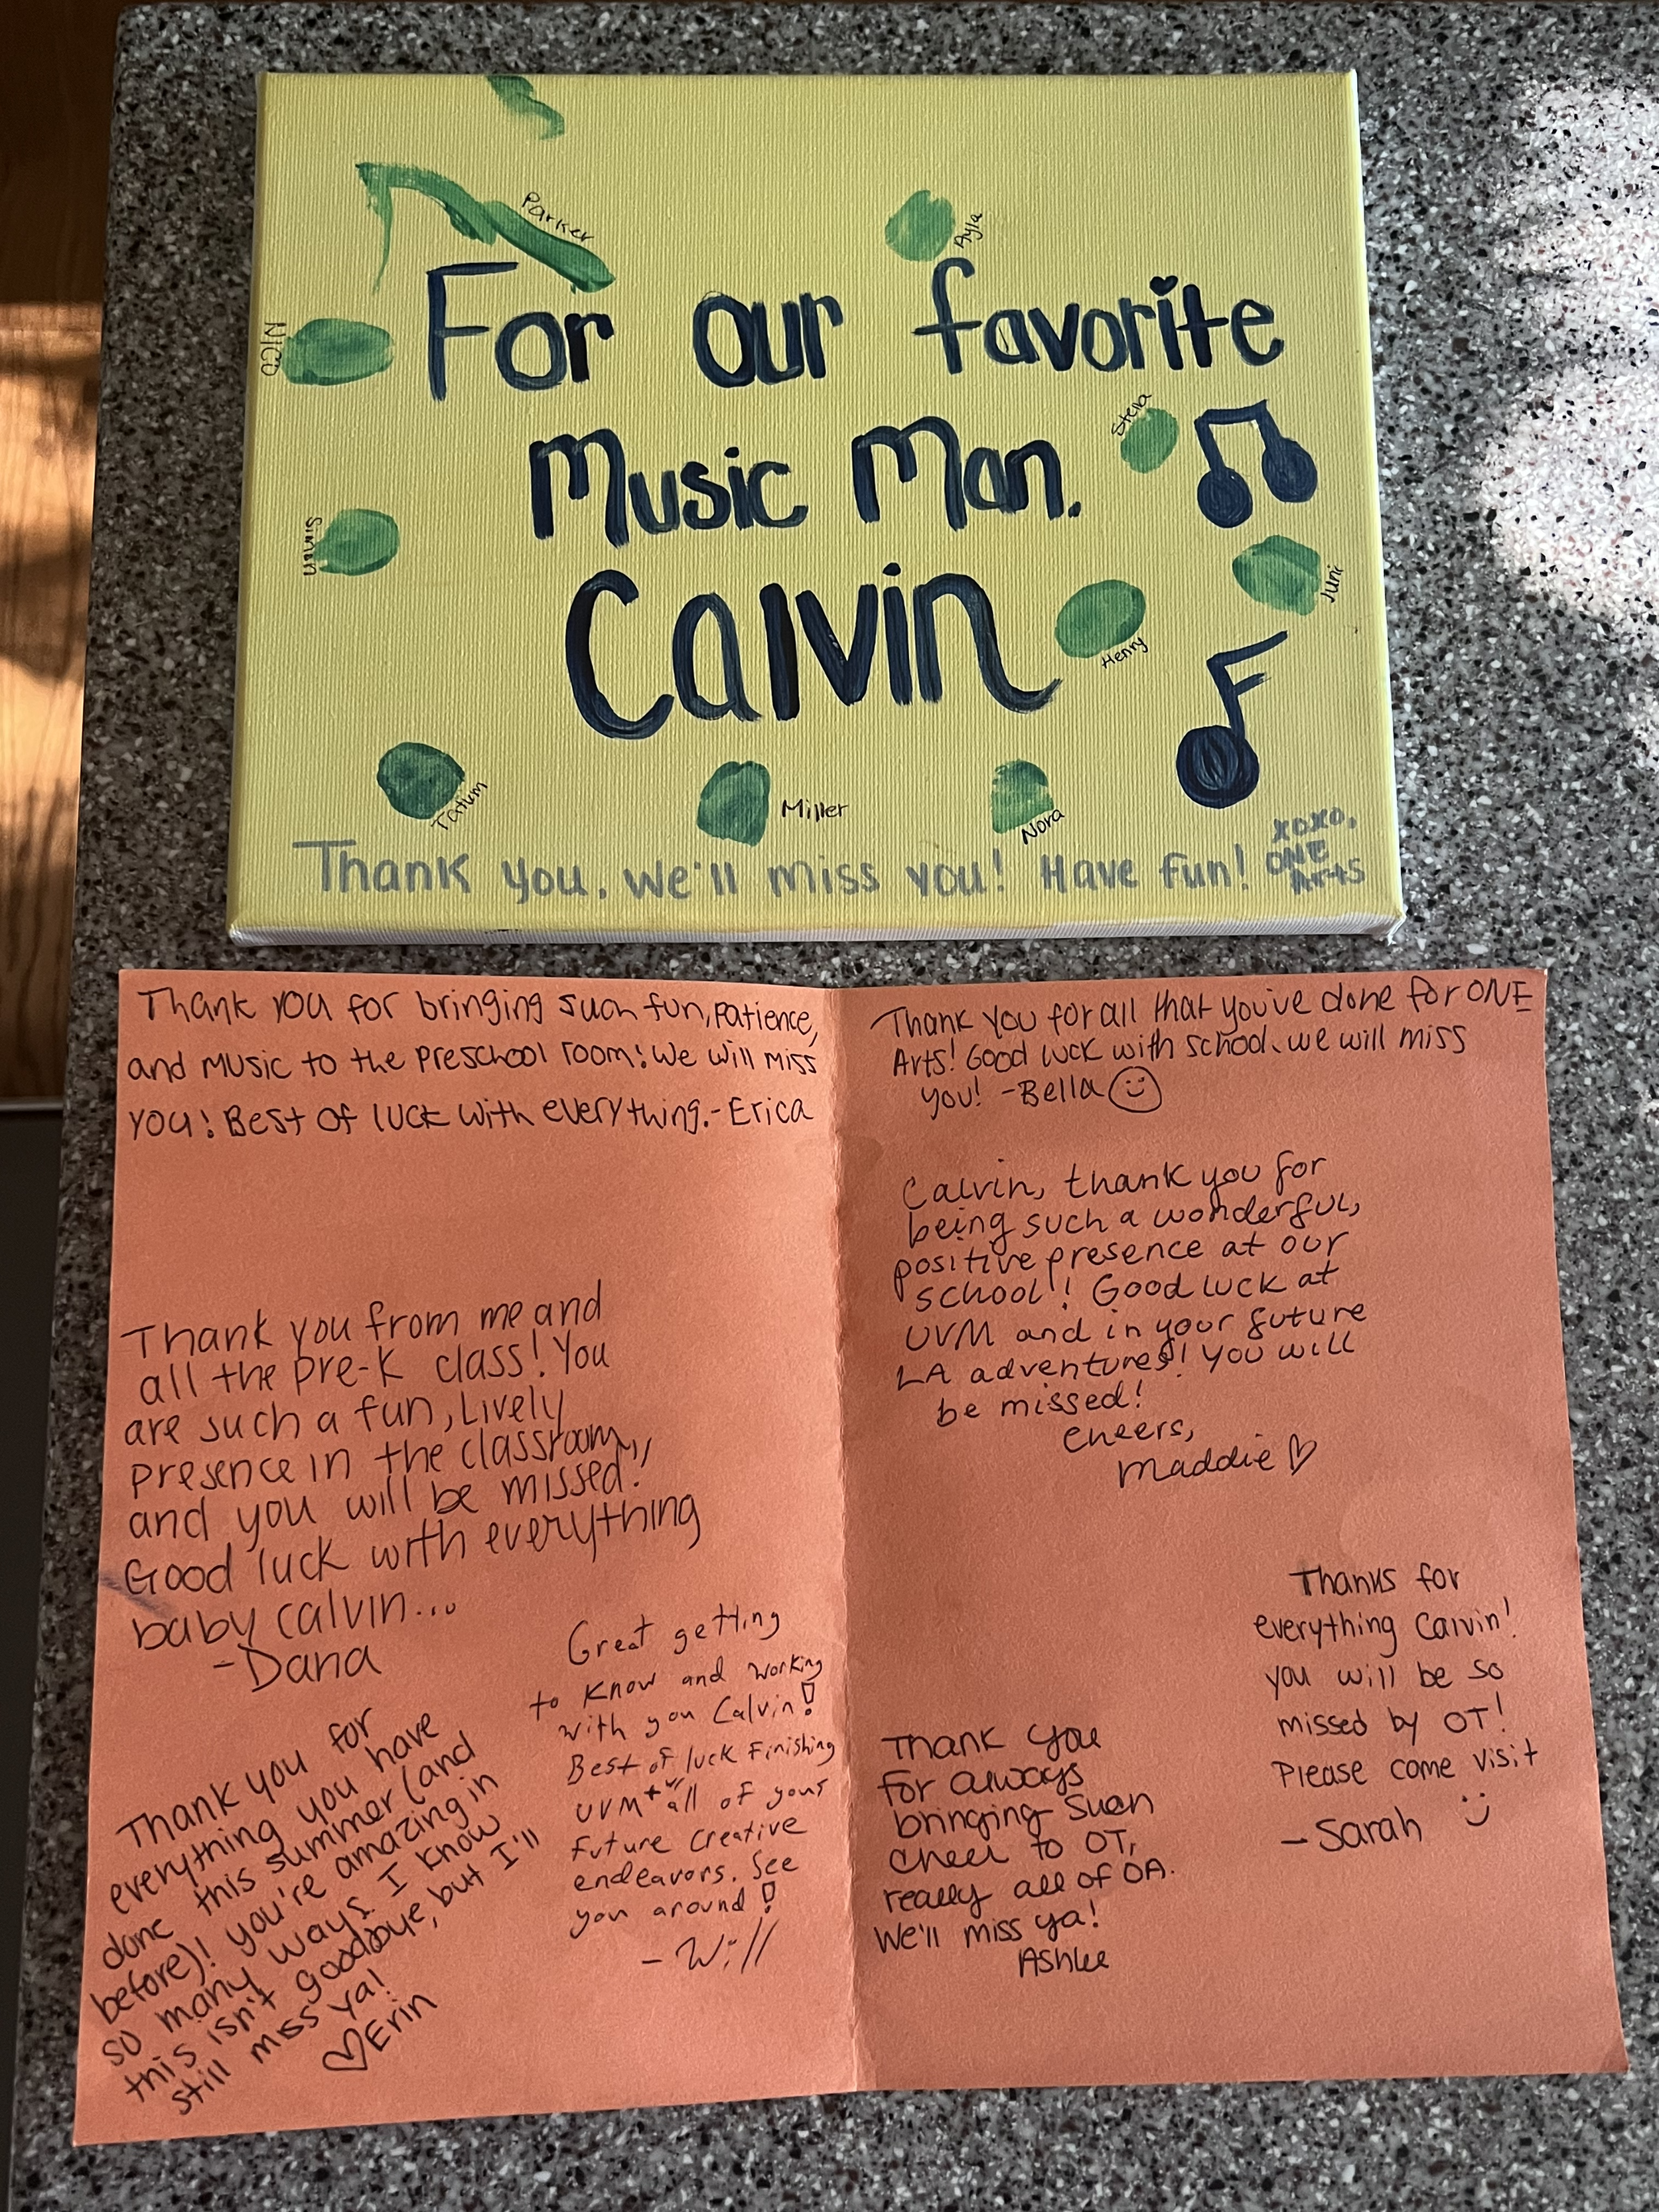 Parker
Ayla
For our favorite
Nico
Stella
Music Man.
Simon
Juni
Calvin
Henry
Tatum
Miller
Nora
Thank you, we'll miss you! Have fun!
xoxo,
ONE
Arts
Thank you for bringing such fun, patience,
and music to the preschool room! We will miss
you! Best of luck with everything. - Erica
Thank you from me and
all the pre-k class! You
are such a fun, Lively
presence in the classroom,
and you will be missed!
Good luck with everything
baby calvin...
- Dana
Thank you for
everything you have
done this summer (and
before)! you're amazing in
so many ways. I know
this isn't goodbye, but I'll
still miss ya!
♡ Erin
Great getting
to know and working
with you Calvin!
Best of luck Finishing
UVM + w/ all of your
Future creative
endeavors. See
you around!
- Will
Thank you for all that you've done for ONE
Arts! Good luck with school. we will miss
you! - Bella ☺
Calvin, thank you for
being such a wonderful,
positive presence at our
school! Good luck at
UVM and in your future
LA adventures! You will
be missed!
Cheers,
Maddie ♡
Thanks for
everything Calvin!
you will be so
missed by OT!
Please come visit
- Sarah :)
Thank you
for always
bringing such
cheer to OT,
really all of OA.
We'll miss ya!
Ashlee